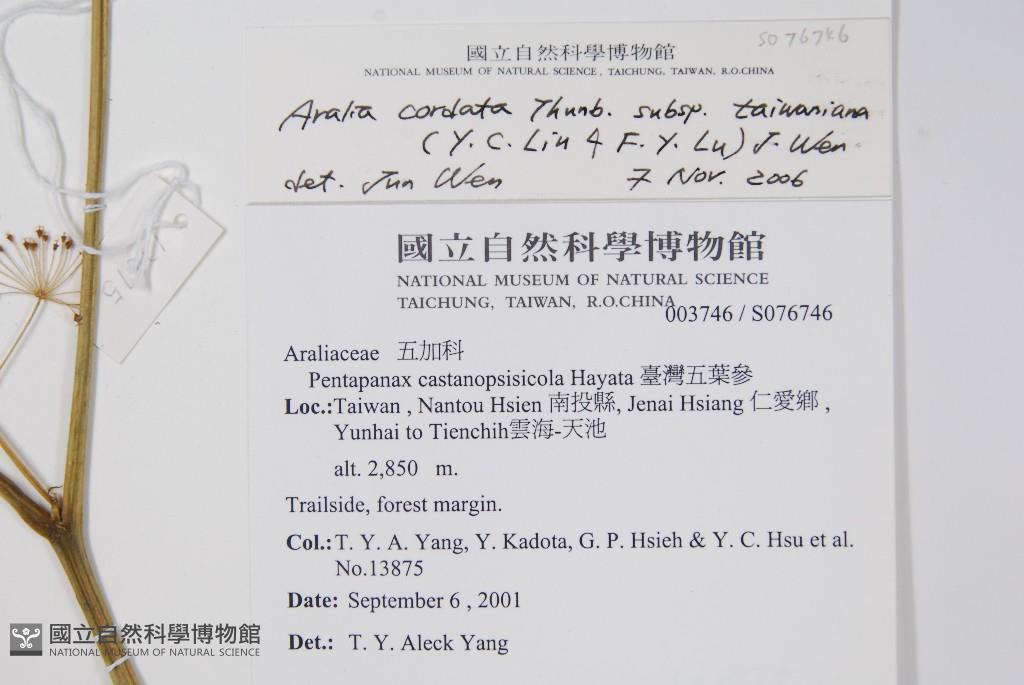 SO76746
國立自然科學博物館
NATIONAL MUSEUM OF NATURAL SCIENCE, TAICHUNG, TAIWAN, R.O.CHINA
Aralia cordata Thunb. subsp. taiwaniana
(Y. C. Liu & F. Y. Lu) J. Wen
det. Jun Wen 7 Nov. 2006
國立自然科學博物館
NATIONAL MUSEUM OF NATURAL SCIENCE
TAICHUNG, TAIWAN, R.O.CHINA
003746 / S076746
Araliaceae 五加科
Pentapanax castanopsisicola Hayata 臺灣五葉參
Loc.:Taiwan , Nantou Hsien 南投縣, Jenai Hsiang 仁愛鄉 ,
Yunhai to Tienchih雲海-天池
alt. 2,850 m.
Trailside, forest margin.
Col.: T. Y. A. Yang, Y. Kadota, G. P. Hsieh & Y. C. Hsu et al.
No.13875
Date: September 6 , 2001
Det.: T. Y. Aleck Yang
國立自然科學博物館
NATIONAL MUSEUM OF NATURAL SCIENCE